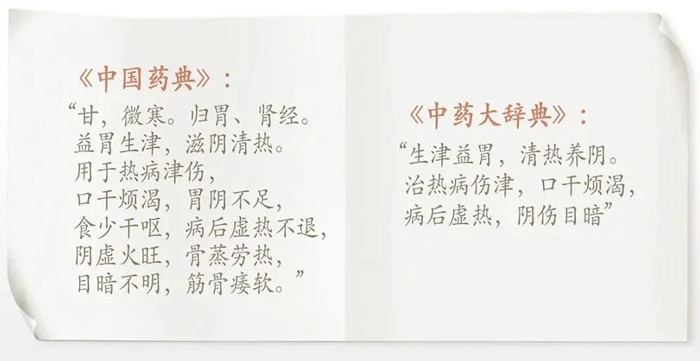 《中国药典》：
“甘，微寒。归胃、肾经。
益胃生津，滋阴清热。
用于热病津伤，
口干烦渴，胃阴不足，
食少干呕，病后虚热不退，
阴虚火旺，骨蒸劳热，
目暗不明，筋骨痿软。”
《中药大辞典》：
“生津益胃，清热养阴。
治热病伤津，口干烦渴，
病后虚热，阴伤目暗”